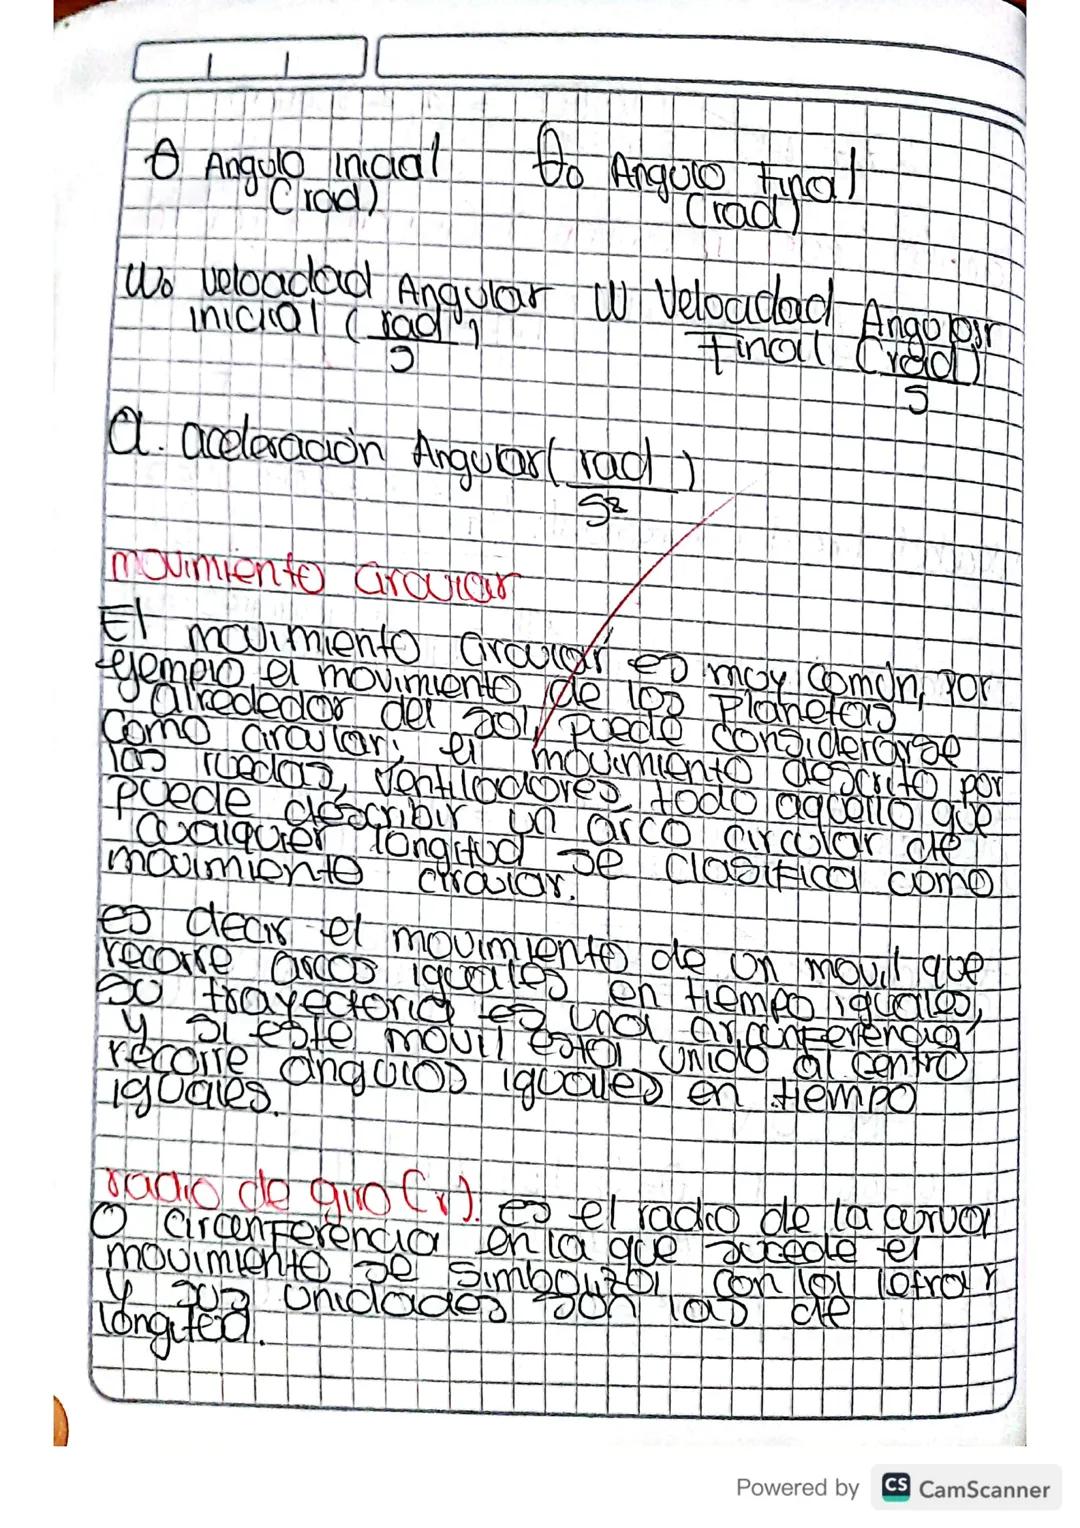 θ Angulo inicial    θo Angulo Final
(rad)    (rad)
Wo velocidad Angular    W Velocidad Angular
inicial (rad/s)    Final (rad)/s
α. aceleración Angular (rad/s²)
movimiento circular
El movimiento circular es muy común, por
ejemplo el movimiento de los Planetas
alrededor del sol, puede considerarse
como circular; el movimiento descrito por
las ruedas, ventiladores, todo aquello que
puede describir un arco circular de
cualquier longitud se clasifica como
movimiento circular.
es decir el movimiento de un movil que
recorre arcos iguales en tiempo iguales,
su trayectoria es una circunferencia,
y si este movil esta unido al centro
recorre angulos iguales en tiempo
iguales.
radio de giro (r). es el radio de la curva
o circunferencia en la que sucede el
movimiento se simboliza con la letra r
y sus unidades son las de
longited.
Powered by CS CamScanner